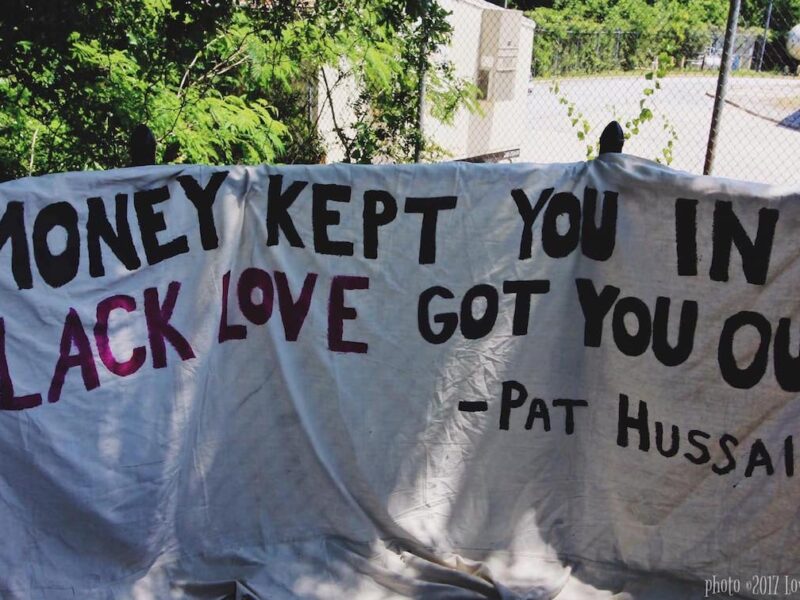 MONEY KEPT YOU IN
LACK LOVE GOT YOU OU
-PAT HUSSAI
photo ©2017 Lo